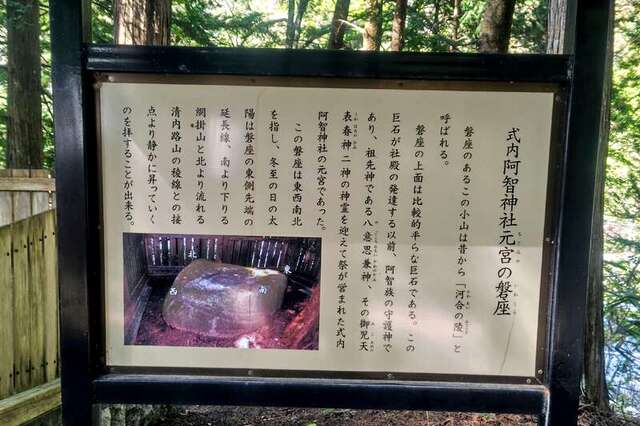 式内阿智神社元宮の磐座
磐座のあるこの小山は昔から「河合の陵」と
呼ばれる。
磐座の上面は比較的平らな巨石である。この
巨石が社殿の発達する以前、阿智族の守護神で
あり、祖先神である八意思兼神、その御児天
表春神 二神の神霊を迎えて祭が営まれた式内
阿智神社の元宮であった。
この磐座は東西南北
を指し、冬至の日の太
陽は磐座の東側先端の
延長線、南より下りる
網掛山と北より流れる
清内路山の稜線との接
点より静かに昇っていく
のを拝することが出来る。
北
東
西
南